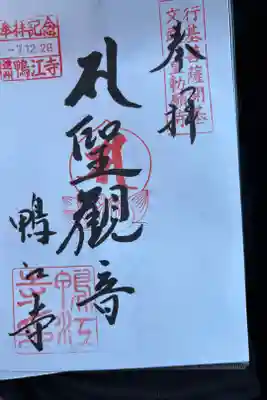 奉拝
行基菩薩開基
札聖観音
鴨江寺
奉拝記念
-7.12.28
遠州
鴨江寺